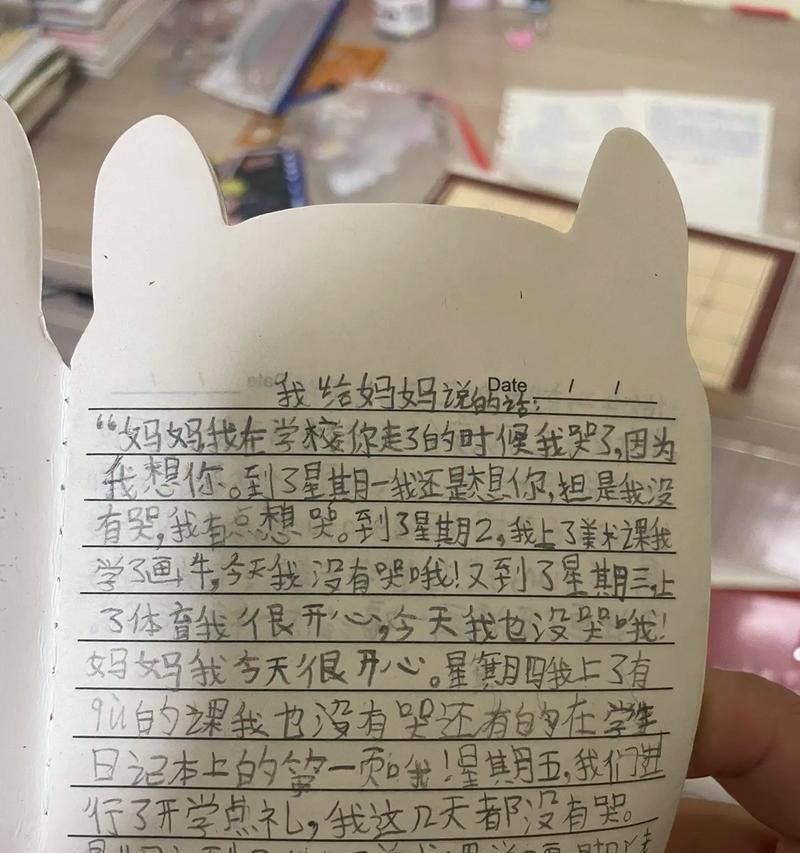 Date / /
我给妈妈说的话:
“妈妈我在学校你走了的时候我哭了,因为
我想你。到了星期一我还是想你,担是我没
有哭,我有点想哭。到了星期2,我上了美术课我
学了画牛,今天我没有哭哦!又到了星期三,上
了体育我很开心,今天我也没哭哦!
妈妈我今天很开心。星期四我上了有
qù的课我也没有哭还有的在学生
日记本上的第一页哦!星期五,我们进
行了开学点礼,我这几天都没有哭。